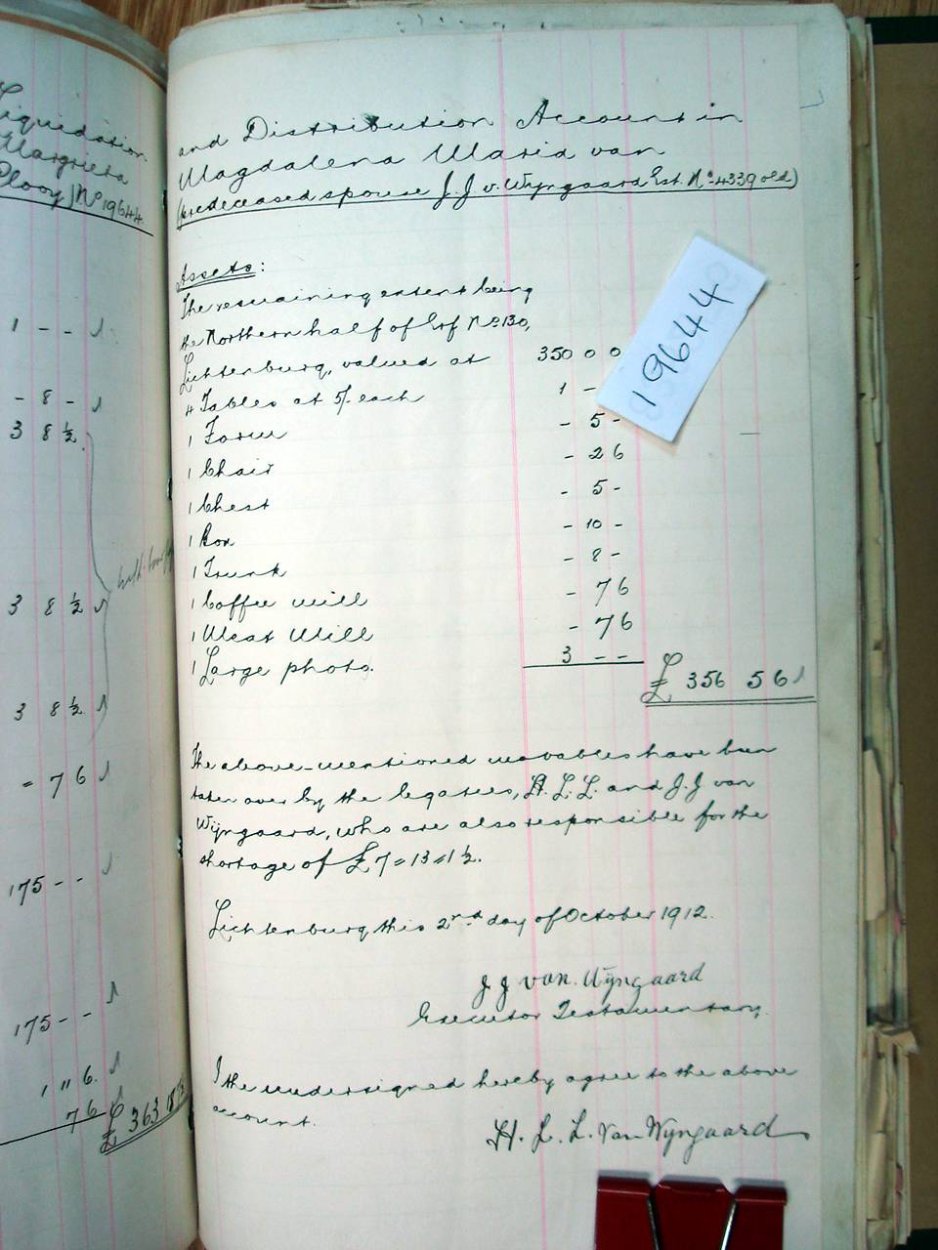 Liquidation
Margrieta
Plooy / No 19644
1 - -
- 8 -
3 8 ½
3 8 ½
3 8 ½
- 7 6
175 - -
175 - -
1 " 6
7 6
£ 363
and Distribution Account in
Magdalena Maria van
(predeceased spouse J.J v. Wyngaard Est. No 4339 old)
Assets:
The remaining extent being
the Northern half of Erf No 130,
Lichtenburg, valued at 350 0 0
4 Tables at 5/- each 1 -
1 Form - 5 -
1 Chair - 2 6
1 Chest - 5 -
1 Box - 10 -
1 Trunk - 8 -
1 Coffee mill - 7 6
1 Meat Mill - 7 6
1 Large photo. 3 - -
£ 356 5 6
19644
The above-mentioned movables have been
taken over by the legatees, H. L. L. and J.J van
Wijngaard, who are also responsible for the
shortage of £7=13=1½.
Lichtenburg this 2nd day of October 1912.
J J van Wyngaard
Executor Testamentary.
I the undersigned hereby agree to the above
account.
H. L. L. Van Wyngaard